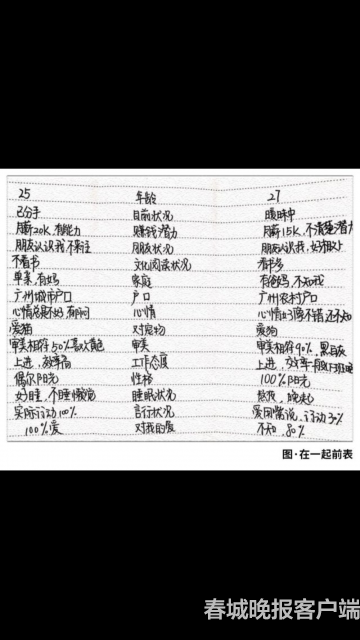 25 年龄 27
已分手 目前状况 暧昧中
月薪20K,有能力 赚钱潜力 月薪15K,不清楚潜力
朋友认识我不来往 朋友状况 朋友认识我,好相处
不看书 文化阅读状况 看书多
单亲,有妈 家庭 有爸妈,不知我
广州城市户口 户口 广州农村户口
心情总是不好,郁闷 心情 心情好像不错还不知
爱猫 对宠物 爱狗
审美相存50%喜欢黄色 审美 审美相存90%,黑
上进,效率高 工作态度 上进,效率一般
偶尔阳光 性格 100%阳光
好睡,不睡懒觉 睡眠状况 熬夜,晚起
实际行动100% 言行状况 爱回常说,行动30%
100%爱 对我的爱 不知,80%
图·在一起前表
春城晚报客户端